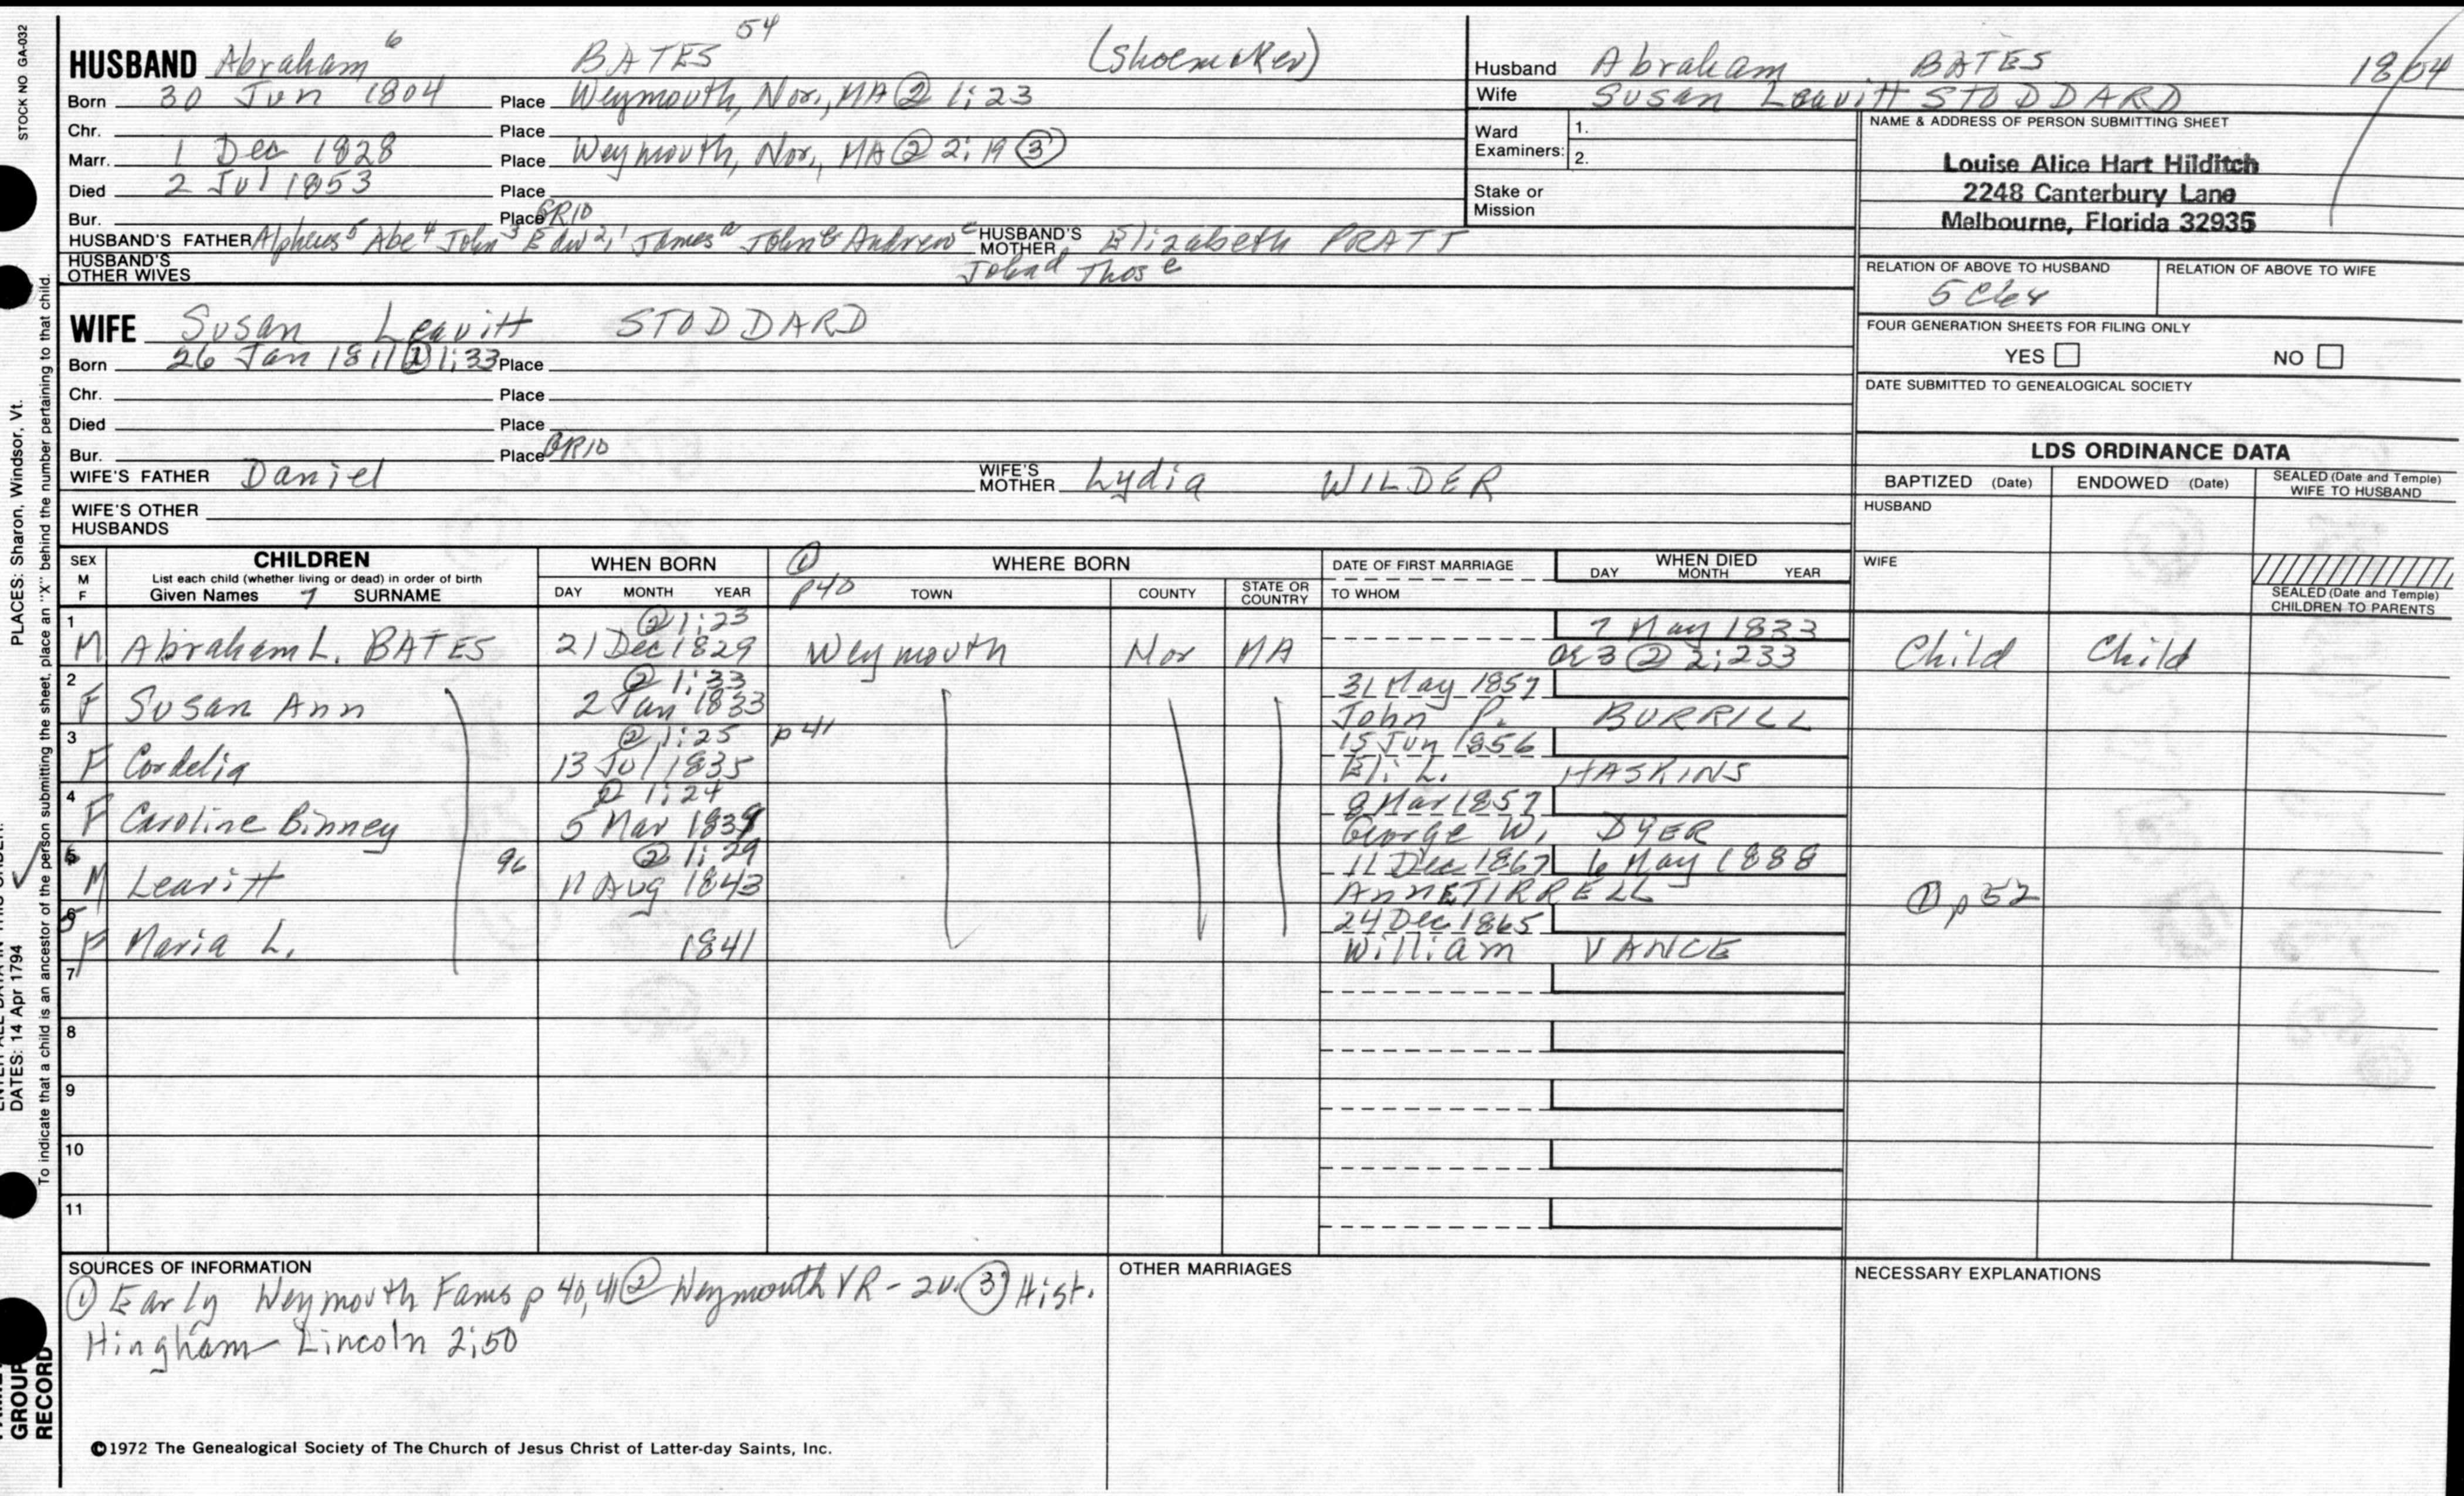 STOCK NO GA-032
HUSBAND Abraham 6 BATES 54 (Shoemaker)
Born 30 Jun 1804 Place Weymouth, Nor., MA ② 1:23
Chr. Place
Marr. 1 Dec 1828 Place Weymouth, Nor., MA ② 2:19 ③
Died 2 Jul 1853 Place
Bur. Place GR10
HUSBAND'S FATHER Alpheus 5 Abe 4 John 3 Edw 2,1 James a John b Andrew c HUSBAND'S MOTHER Elizabeth PRATT
HUSBAND'S OTHER WIVES John d Thos e
WIFE Susan Leavitt STODDARD
Born 26 Jan 1811 ② 1:33 Place
Chr. Place
Died Place
Bur. Place GR10
WIFE'S FATHER Daniel WIFE'S MOTHER Lydia WILDER
WIFE'S OTHER HUSBANDS
Husband Abraham BATES 1804
Wife Susan Leavitt STODDARD
Ward Examiners: 1.
2.
Stake or Mission
NAME & ADDRESS OF PERSON SUBMITTING SHEET
Louise Alice Hart Hilditch
2248 Canterbury Lane
Melbourne, Florida 32935
RELATION OF ABOVE TO HUSBAND RELATION OF ABOVE TO WIFE
FOUR GENERATION SHEETS FOR FILING ONLY
YES NO
DATE SUBMITTED TO GENEALOGICAL SOCIETY
LDS ORDINANCE DATA
BAPTIZED (Date) ENDOWED (Date) SEALED (Date and Temple) WIFE TO HUSBAND
HUSBAND
WIFE
SEALED (Date and Temple) CHILDREN TO PARENTS
SEX M F CHILDREN WHEN BORN ① p40 WHERE BORN DATE OF FIRST MARRIAGE WHEN DIED
List each child (whether living or dead) in order of birth DAY MONTH YEAR
Given Names 7 SURNAME DAY MONTH YEAR TOWN COUNTY STATE OR COUNTRY TO WHOM
1 ② 1:23 7 May 1833
M Abraham L. BATES 21 Dec 1829 Weymouth Nor MA ae 3 ② 2:233 Child Child
2 ② 1:33 31 May 1857
F Susan Ann 2 Jan 1833 John P. BURRILL
3 ② 1:25 p41 15 Jun 1856
F Cordelia 13 Jul 1835 Eli L. HASKINS
4 ② 1:24 8 Mar 1857
F Caroline Binney 5 Mar 1839 George W. DYER
6 96 ② 1:29 11 Dec 1867 6 May 1888
M Leavitt 11 Aug 1843 Ann E TIRRELL ① p52
5 24 Dec 1865
F Maria L. 1841 William VANCE
7
8
9
10
11
SOURCES OF INFORMATION
① Early Weymouth Fams p 40,41 ② Weymouth VR - 2v. ③ Hist.
Hingham Lincoln 2:50
OTHER MARRIAGES
NECESSARY EXPLANATIONS
©1972 The Genealogical Society of The Church of Jesus Christ of Latter-day Saints, Inc.
PLACES: Sharon, Windsor, Vt.
DATES: 14 Apr 1794
To indicate that a child is an ancestor of the person submitting the sheet, place an "X" behind the number pertaining to that child.
GROUP
RECORD